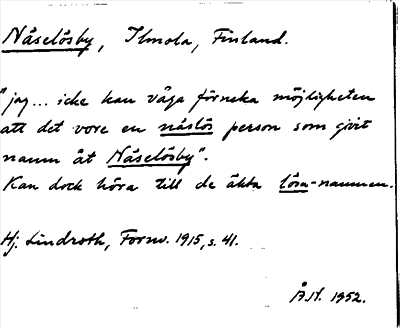 Nåselösby, Ilmola, Finland.
"jag... icke kan våga förneka möjligheten
att det vore en nåslös person som givit
namn åt Nåselösby".
Kan dock höra till de äkta lösa-namnen.
Hj. Lindroth, Fornv. 1915, s. 41.
Å.H. 1952.